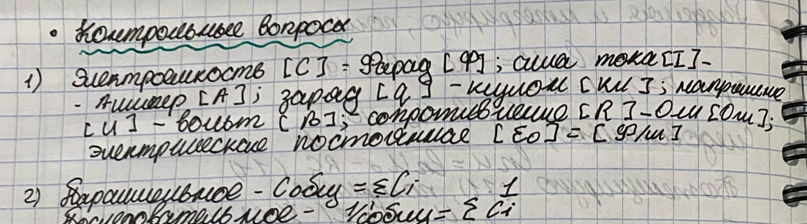 • Контрольные вопросы
1) Электроёмкость [C] = Фарад [Ф]; сила тока [I] -
- Ампер [A]; заряд [q] - кулон [Кл]; напряжение
[U] - вольт [В]; сопротивление [R] - Ом [Ом];
электрическая постоянная [ε0] = [Ф/м]
2) Параллельное - Cобщ = ΣCi
Последовательное - 1/Cобщ = Σ 1/Ci